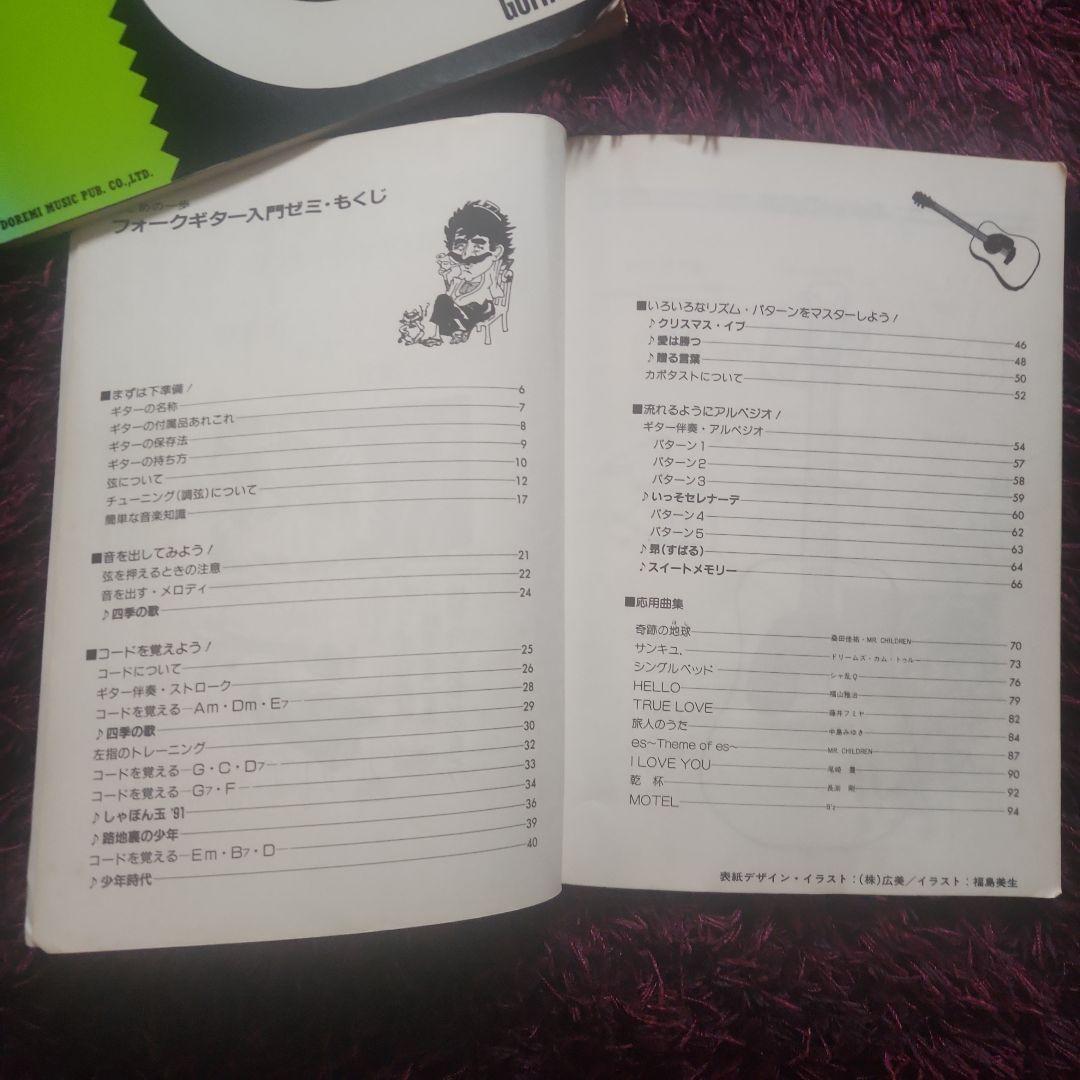 GUIT
DOREMI MUSIC PUB. CO.,LTD.
めの一歩
フォークギター入門ゼミ・もくじ
■まずは下準備!
ギターの名称 6
ギターの付属品あれこれ 7
ギターの保存法 8
ギターの持ち方 9
弦について 10
チューニング(調弦)について 12
簡単な音楽知識 17
■音を出してみよう!
弦を押えるときの注意 21
音を出す・メロディ 22
♪四季の歌 24
■コードを覚えよう!
コードについて 25
ギター伴奏・ストローク 26
コードを覚える—Am・Dm・E7 28
♪四季の歌 29
左指のトレーニング 30
コードを覚える—G・C・D7 32
コードを覚える—G7・F 33
♪しゃぼん玉 '91 34
♪路地裏の少年 36
コードを覚える—Em・B7・D 39
♪少年時代 40
■いろいろなリズム・パターンをマスターしよう!
♪クリスマス・イブ 46
♪愛は勝つ 48
♪贈る言葉 50
カポタストについて 52
■流れるようにアルペジオ!
ギター伴奏・アルペジオ 54
パターン1 57
パターン2 58
パターン3 59
♪いっそセレナーデ 60
パターン4 62
パターン5 63
♪昴(すばる) 64
♪スイートメモリー 66
■応用曲集
奇跡の地球 桑田佳祐・MR. CHILDREN 70
サンキュ. ドリームズ・カム・トゥルー 73
シングルベッド シャ乱Q 76
HELLO 福山雅治 79
TRUE LOVE 藤井フミヤ 82
旅人のうた 中島みゆき 84
es~Theme of es~ MR. CHILDREN 87
I LOVE YOU 尾崎 豊 90
乾 杯 長渕 剛 92
MOTEL B'z 94
表紙デザイン・イラスト:(株)広美/イラスト:福島美生